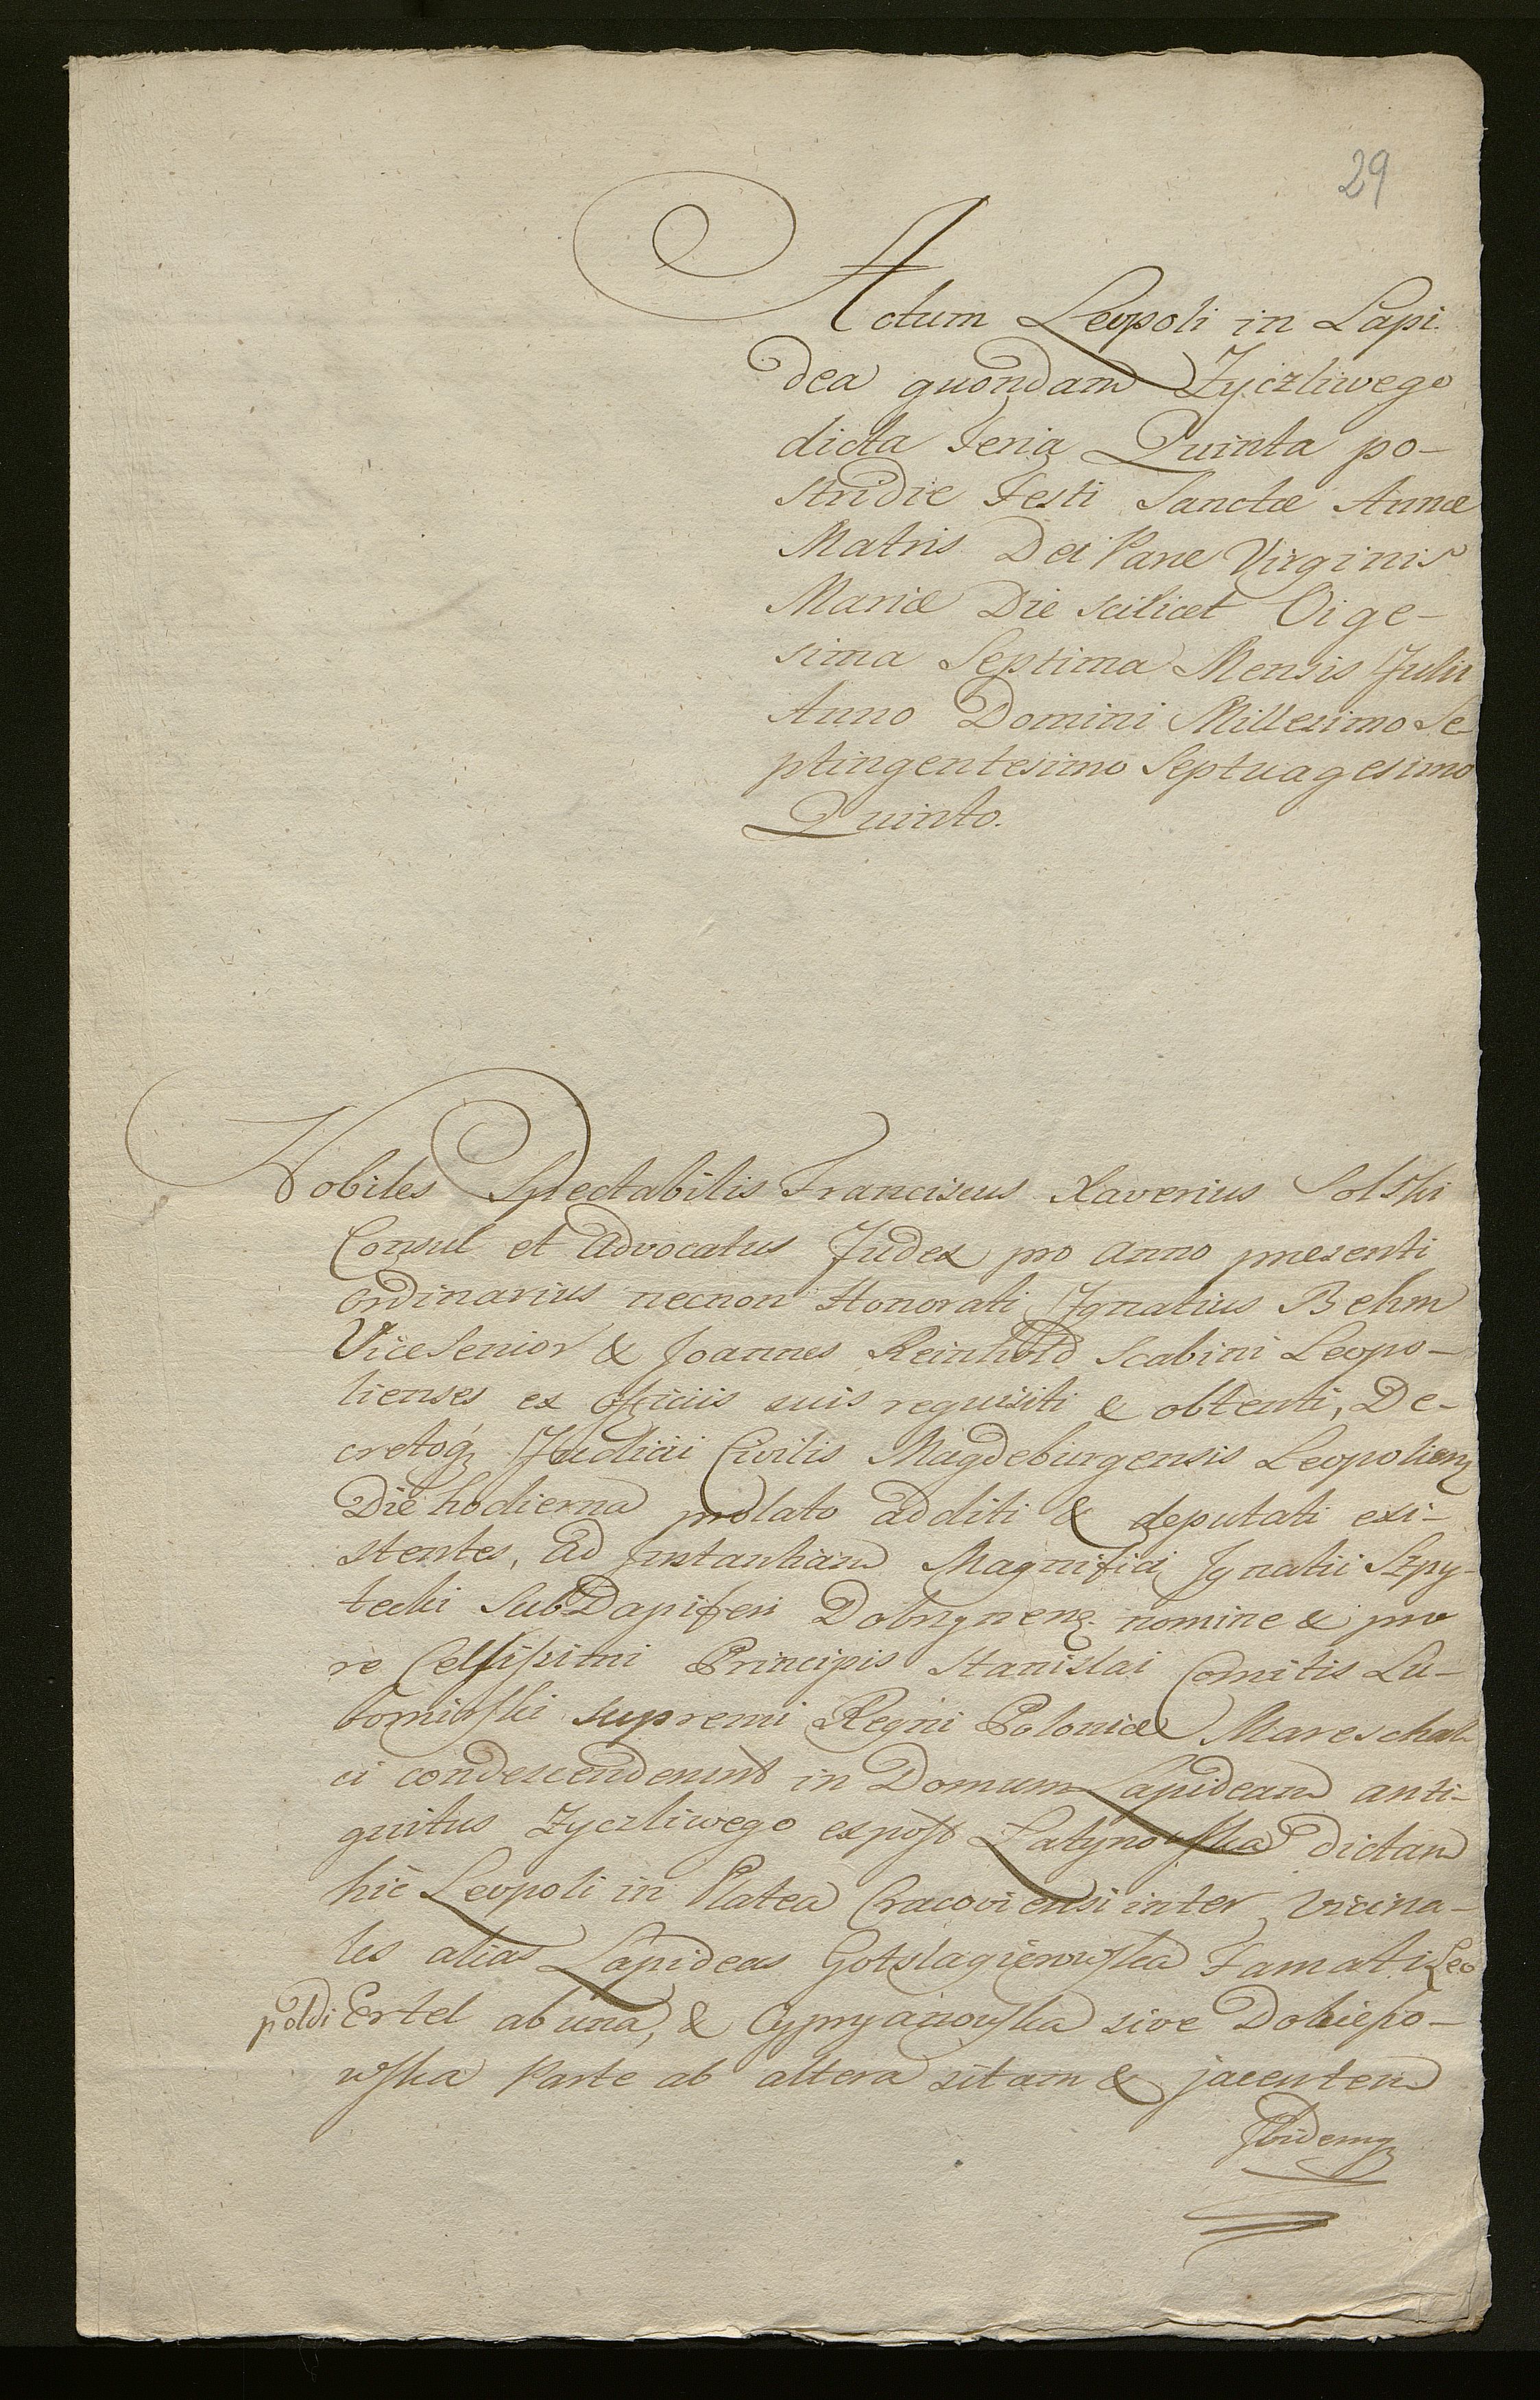 29
Actum Leopoli in Lapi
dea quondam Zyczliwego
dicta Feria Quinta po-
stridie Festi Sanctæ Annæ
Matris Dei Paræ Virginis
Mariæ Die scilicet Vige-
sima Septima Mensis Julii
Anno Domini Millesimo Se
ptingentesimo Septuagesimo
Quinto.
Nobiles Spectabilis Franciscus Xaverius Solski
Consul et Advocatus Judex pro Anno præsenti
Ordinarius necnon Honorati Ignatius Behm
Vice Senior & Joannes Reinhold Scabini Leopo-
lienses ex Officiis suis requisiti & obtenti, De-
cretoq Judicii Civilis Magdeburgensis Leopolien
Die hodierna prolato additi & deputati exi-
stentes, ad Instantiam Magnifici Ignatii Szpy-
tecki SubDapiferi Dobrynen nomine &
re Celsissimi Principis Stanislai Comitis Lu-
bomirski supremi Regni Poloniæ Mareschal
ci condescenderunt in Domum Lapideam anti-
quitus Zyczliwego expost Latynowska dictam
hic Leopoli in Platea Cracoviensi inter Vicina-
les alias Lapideas Gotslagierowska Famati Leo
poldi Ertel ab una, & Cypryanowska sive Dobieszo-
wska Parte ab altera sitam & jacentem
Ibidemq